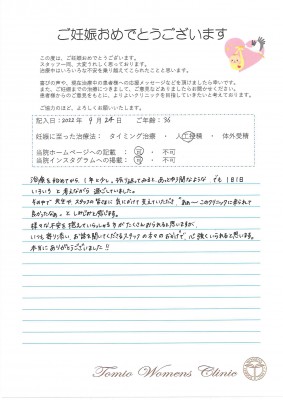 ご妊娠おめでとうございます
この度は、ご妊娠おめでとうございます。
スタッフ一同、大変うれしく思っております。
治療中はいろいろな不安を乗り越えてこられたことと思います。
喜びの声や、現在治療中の患者様への応援メッセージなどを頂けましたら幸いです。
また、ご妊娠までの治療につきまして、ご意見などありましたらお聞かせください。
患者様からのご意見をもとに、よりよいクリニックを目指していきたいと考えております。
ご協力のほど、よろしくお願いいたします。
記入日：2022年 9月 24日 ご年齢：36
妊娠に至った治療法： タイミング治療 ・ 人工授精 ・ 体外受精
当院ホームページへの記載： 可 ・ 不可
当院インスタグラムへの掲載： 可 ・ 不可
治療を始めてから、1年と少し。振り返ってみるとあっという間なような でも1日1日
いろいろと考えながら過ごしていました。
その中で 先生や スタッフの皆さまに 気にかけて 支えていただき
このクリニックに来られて
良かったなぁ と しみじみと感じます。
様々な不安を抱えていらっしゃる方が たくさんおられると思いますが、
いつも寄り添い、お話を聞いてくださるスタッフの方々のおかげで、心強くいられると思います。
本当にありがとうございました!!
Tomio Womens Clinic